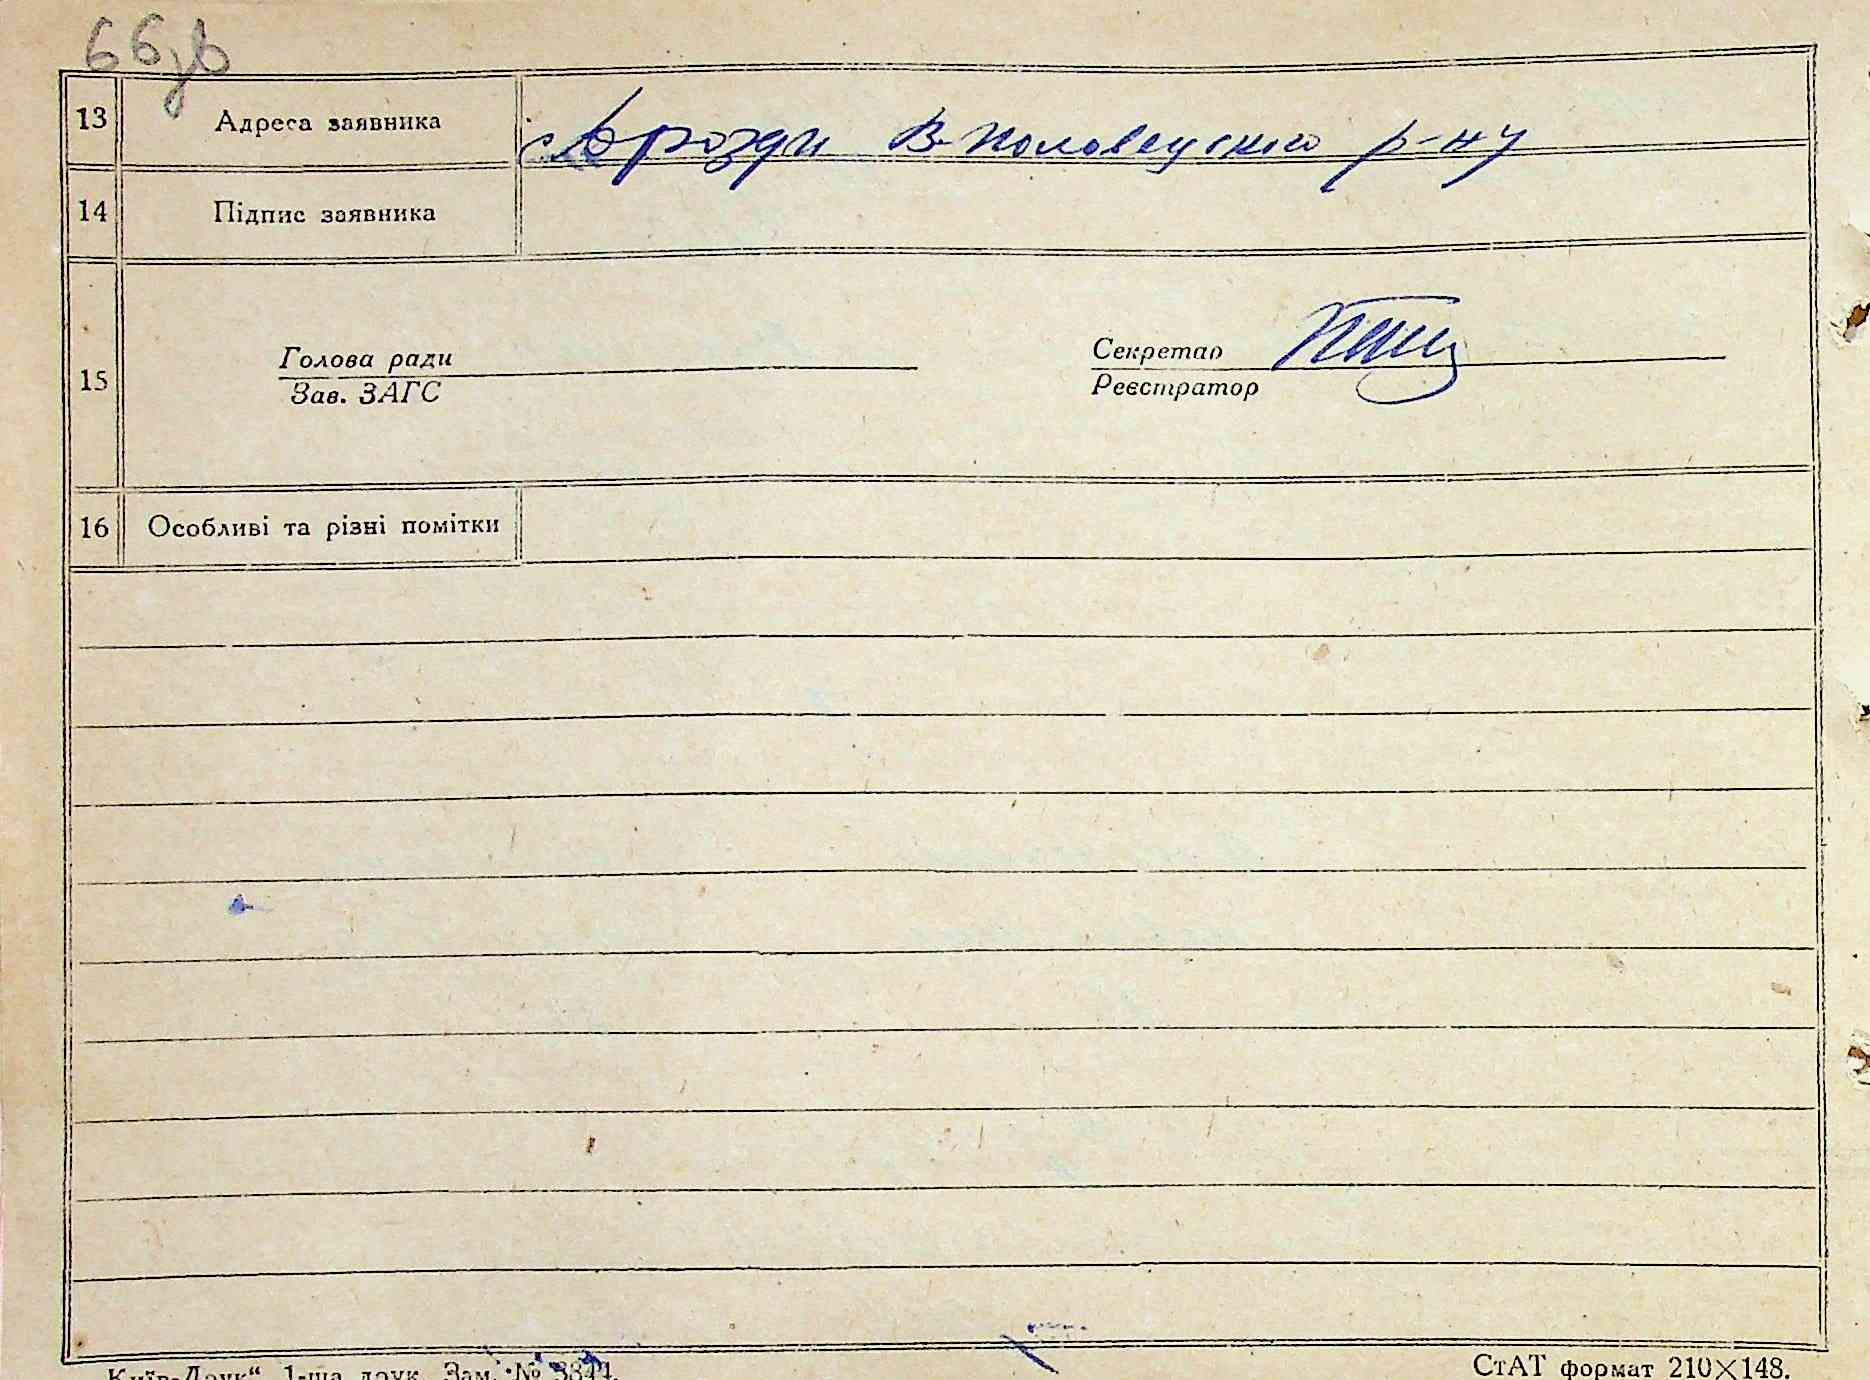 66 зв
13 Адреса заявника с Дрозди В-Половецкого р-ну
14 Підпис заявника
15 Голова ради Секретар
Зав. ЗАГС Реєстратор
16 Особливі та різні помітки
„Київ-Друк“ 1-ша друк. Зам. № 3344. СтАТ формат 210×148.